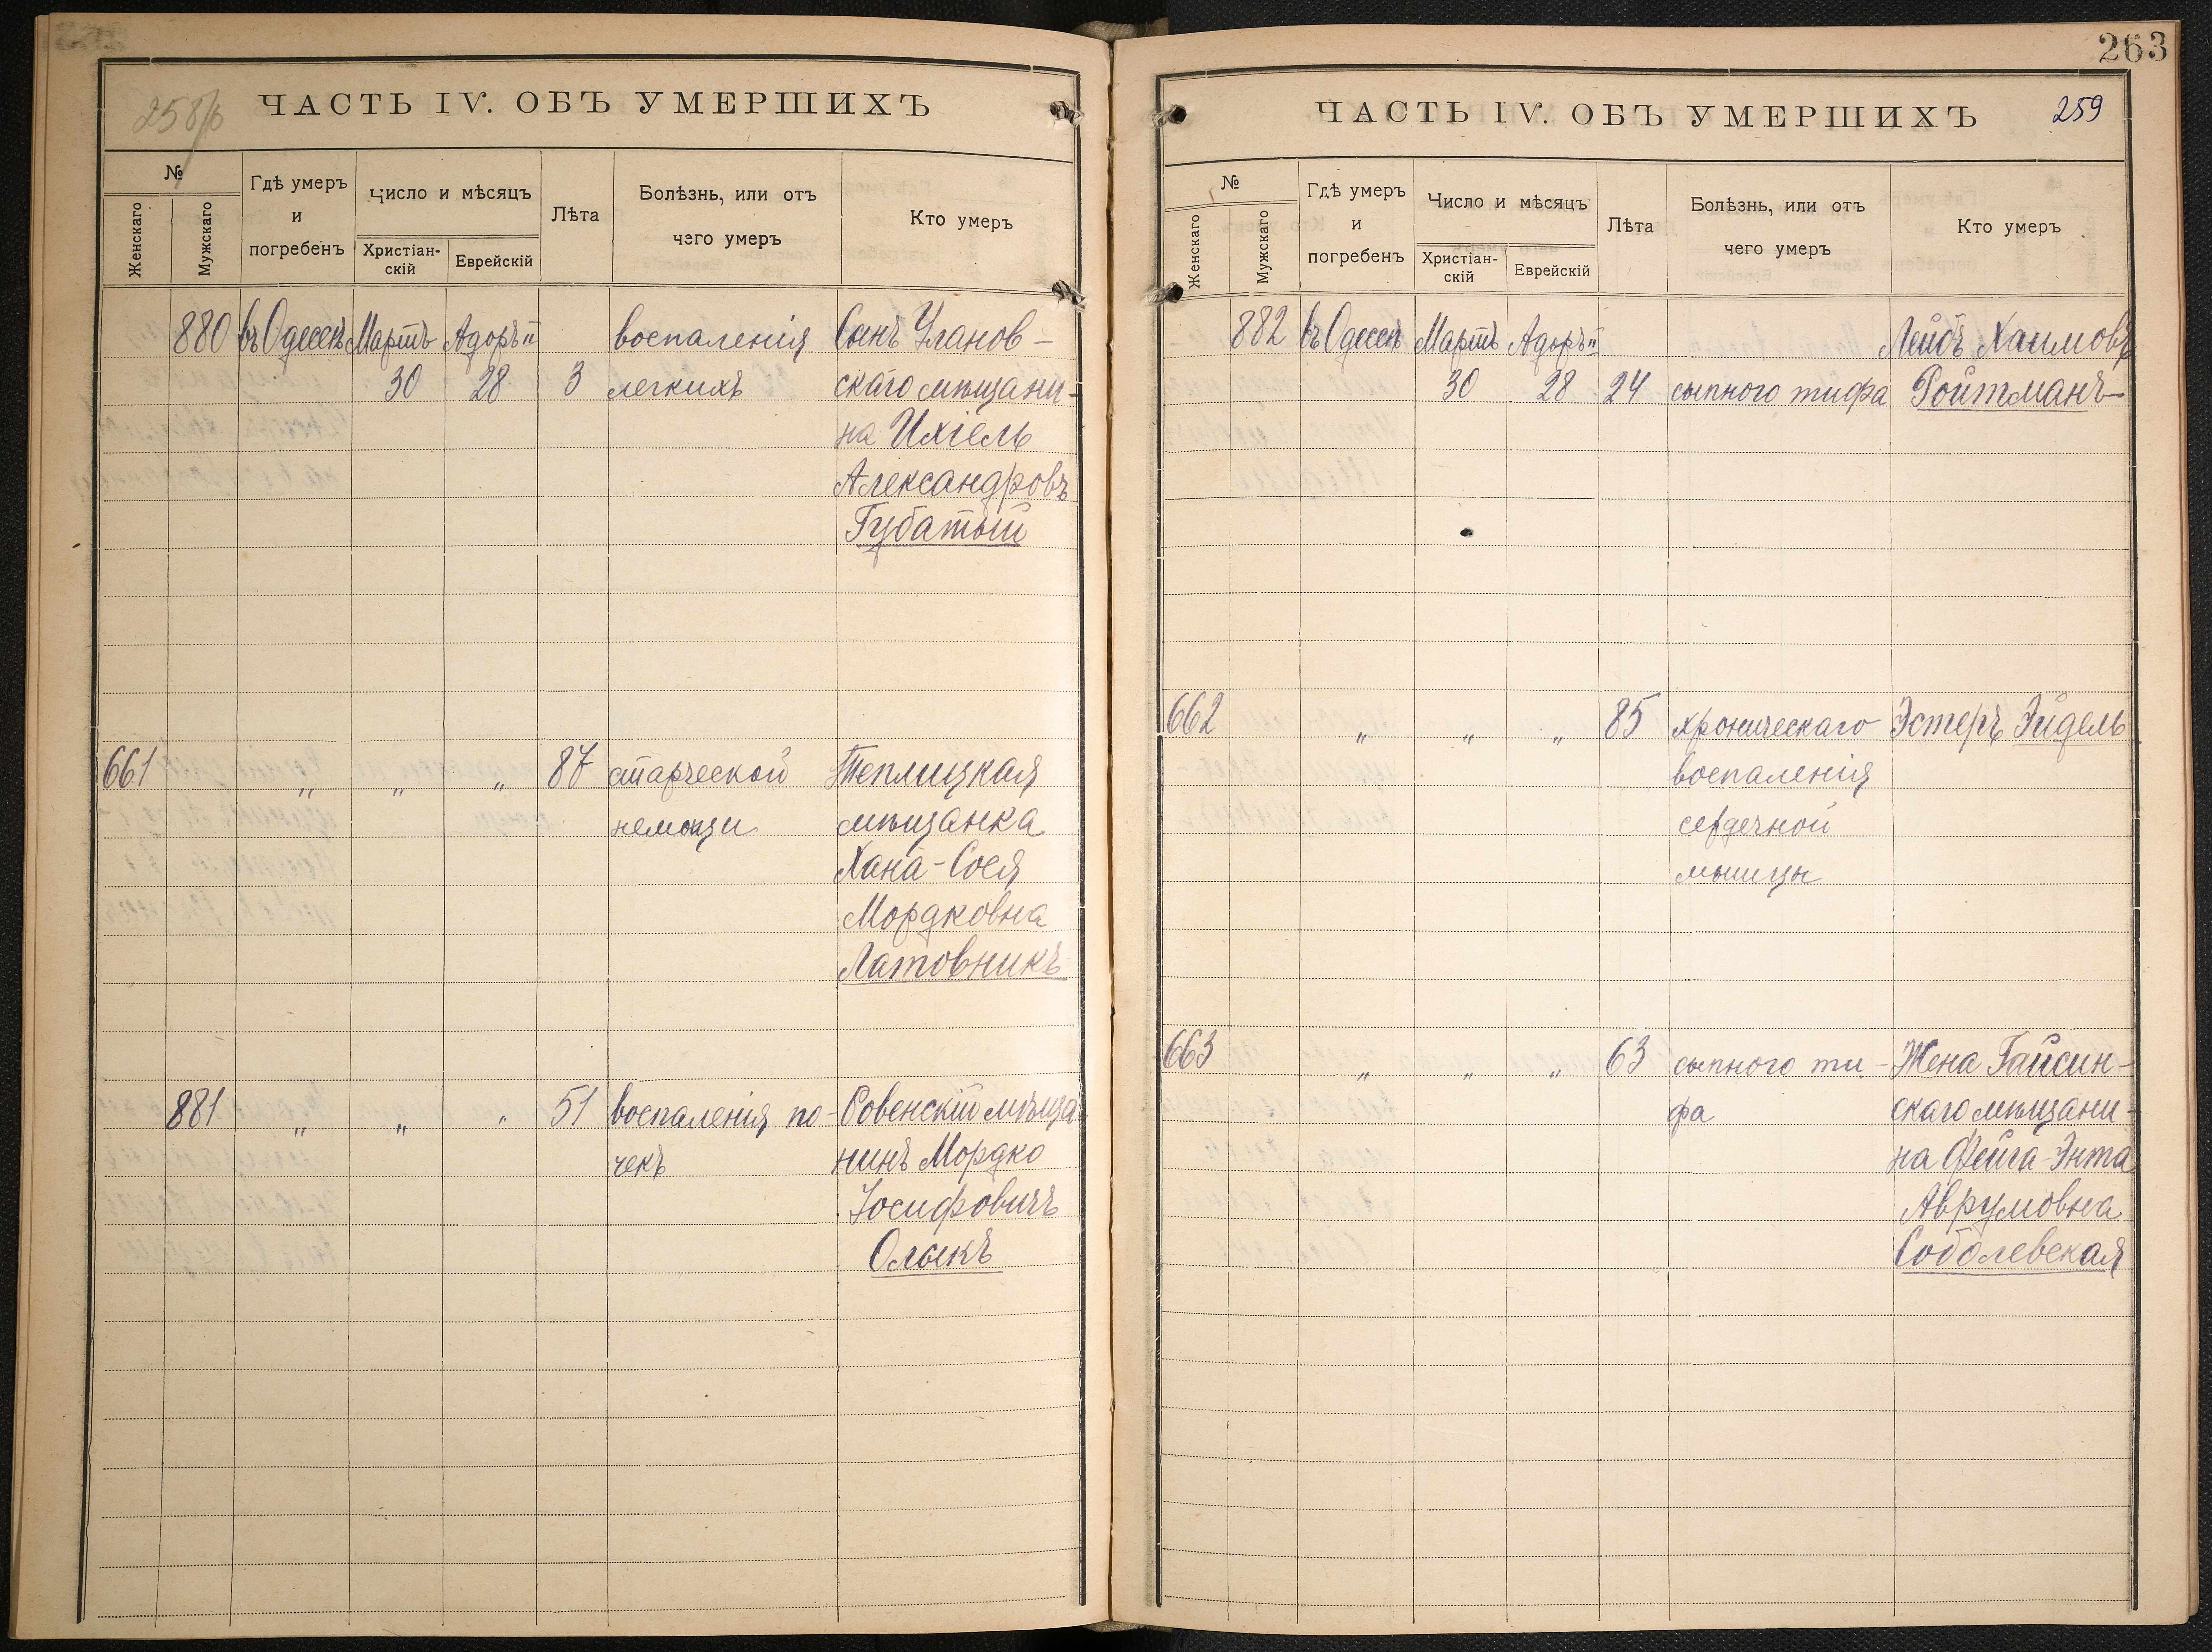 258/б
ЧАСТЬ IV. ОБЪ УМЕРШИХЪ
№
Женскаго
Мужскаго
Гдѣ умеръ
и
погребенъ
Число и мѣсяцъ
Христіан-
скій
Еврейскій
Лѣта
Болѣзнь, или отъ
чего умеръ
Кто умеръ
880 въ Одессѣ Мартъ Адоръ II воспаленія Сынъ Уланов-
30 28 3 легкихъ скаго мѣщани-
на Ихіель
Александровъ
Губатый
661 " " " 87 старческой Теплицкая
немощи мѣщанка
Хана-Сося
Мордковна
Латовникъ
881 " " " 51 воспаленія по- Ровенскій мѣща-
чекъ нинъ Мордко
Іосифовичъ
Олыкъ
263
ЧАСТЬ IV. ОБЪ УМЕРШИХЪ
259
№
Женскаго
Мужскаго
Гдѣ умеръ
и
погребенъ
Число и мѣсяцъ
Христіан-
скій
Еврейскій
Лѣта
Болѣзнь, или отъ
чего умеръ
Кто умеръ
882 въ Одессѣ Мартъ Адоръ II Лейбъ Хаимовъ
30 28 24 сыпного тифа Ройтманъ
662 " " " 85 хроническаго Эстеръ Эйдель
воспаленія
сердечной
мышцы
663 " " " 63 сыпного ти- Жена Гайсин-
фа скаго мѣщани-
на Фейга-Энта
Аврумовна
Соболевская